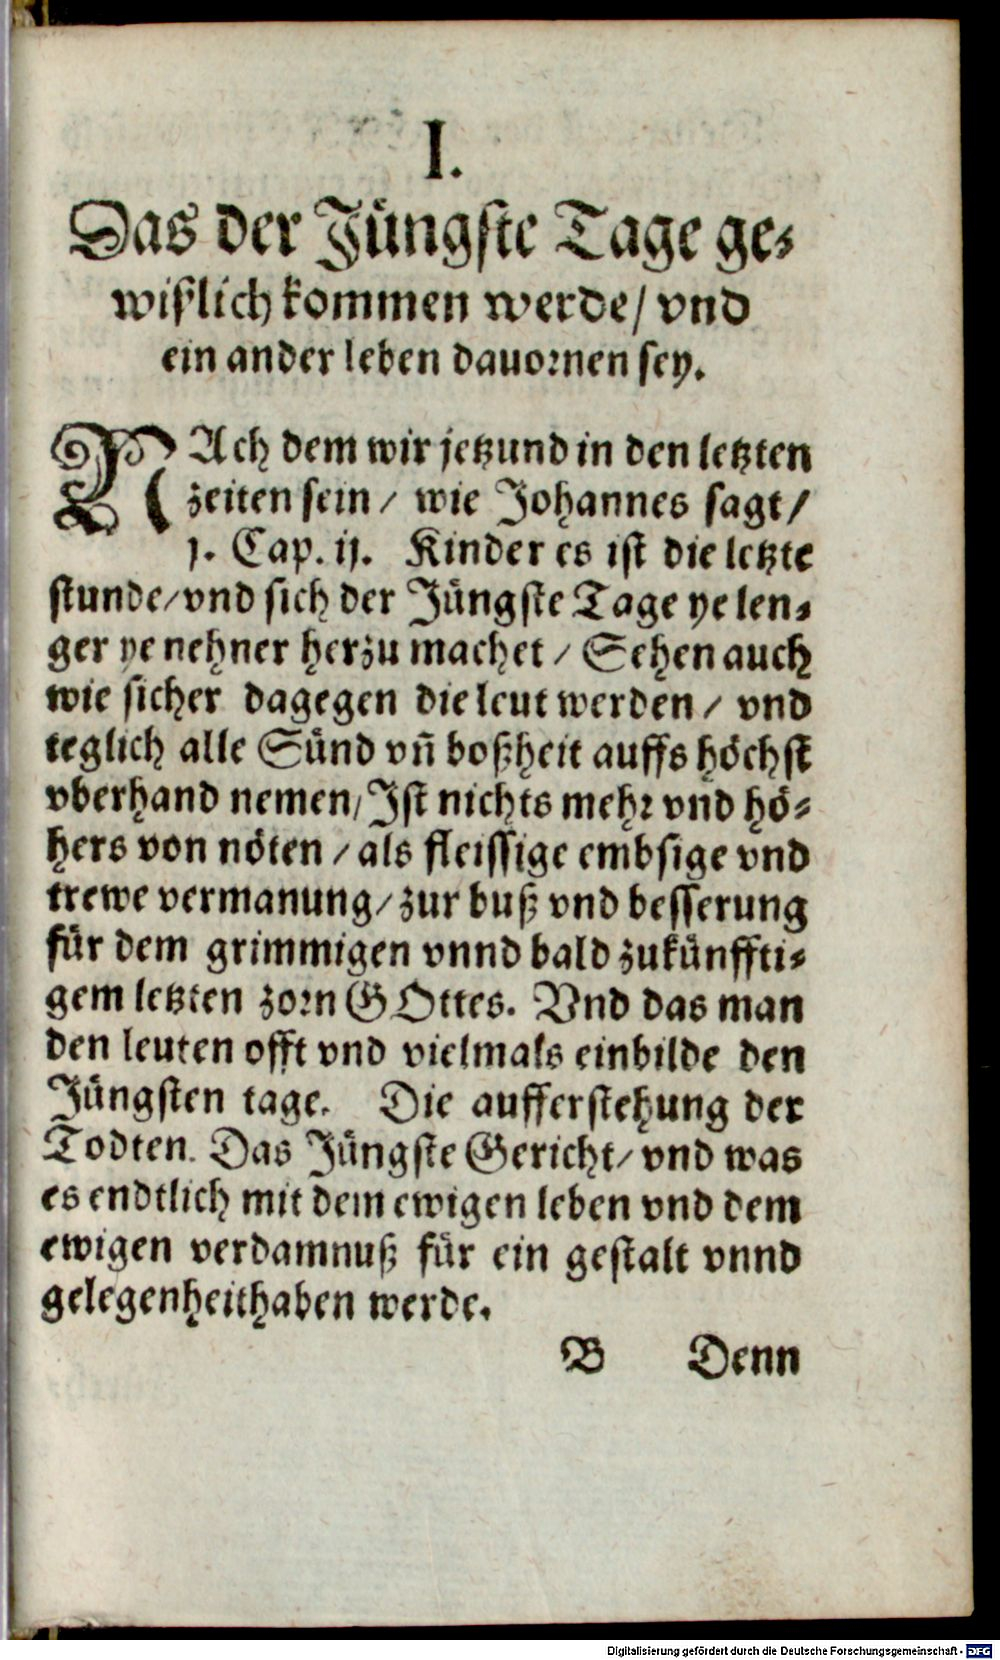 I.
Das der Jüngste Tage ge-
wißlich kommen werde/ vnd
ein ander leben dauornen sey.
NAch dem wir jetzund in den letzten
zeiten sein / wie Johannes sagt /
j. Cap. ij. Kinder es ist die letzte
stunde/ vnd sich der Jüngste Tage ye len-
ger ye nehner herzu machet / Sehen auch
wie sicher dagegen die leut werden / vnd
teglich alle Sünd vñ boßheit auffs höchst
vberhand nemen/ Ist nichts mehr vnd hö-
hers von nöten / als fleissige embsige vnd
trewe vermanung/ zur buß vnd besserung
für dem grimmigen vnnd bald zukünffti-
gem letzten zorn GOttes. Vnd das man
den leuten offt vnd vielmals einbilde den
Jüngsten tage. Die aufferstehung der
Todten. Das Jüngste Gericht/ vnd was
es endtlich mit dem ewigen leben vnd dem
ewigen verdamnuß für ein gestalt vnnd
gelegenheit haben werde.
B Denn
Digitalisierung gefördert durch die Deutsche Forschungsgemeinschaft - DFG